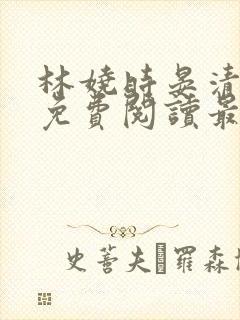 林嬈時晏清
免費閱讀最
史蒂夫·羅森博